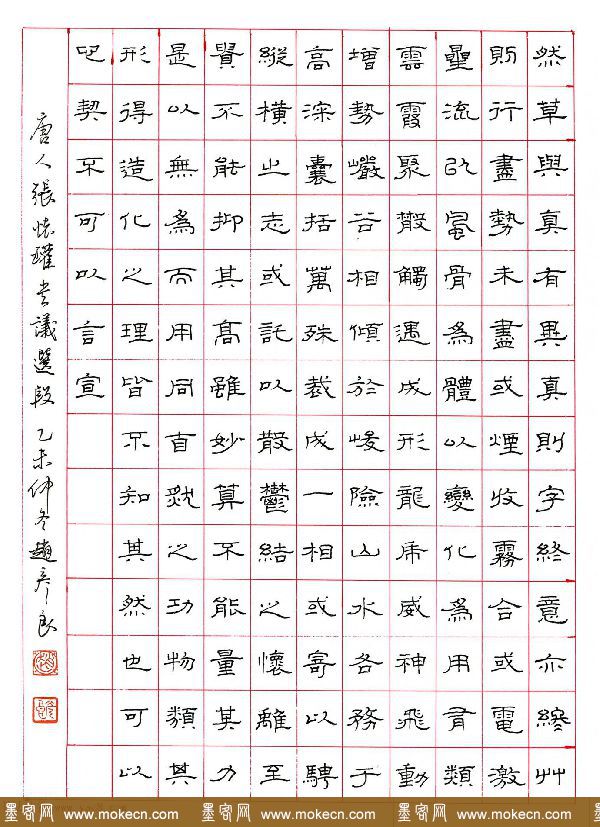 然草與真有異真則字終意亦終艸
則行盡勢未盡或煙收霧合或電激
星流以風骨為體以變化為用有類
雲霞聚散觸遇成形龍虎威神飛動
增勢巖谷相傾於峻險山水各務于
高深囊括萬殊裁成一相或寄以騁
縱橫之志或託以散鬱結之懷雖至
貴不能抑其高雖妙算不能量其力
是以無為而用同自然之功物類其
形得造化之理皆不知其然也可以
心契不可以言宣
唐人張懷瓘書議選段 乙未仲冬趙彥良
墨客网 www.mokecn.com 墨客网 www.mokecn.com 墨客网 www.mokecn.com